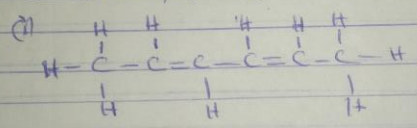 (ii)
H H H H H
H - C - C = C - C = C - C - H
H H H